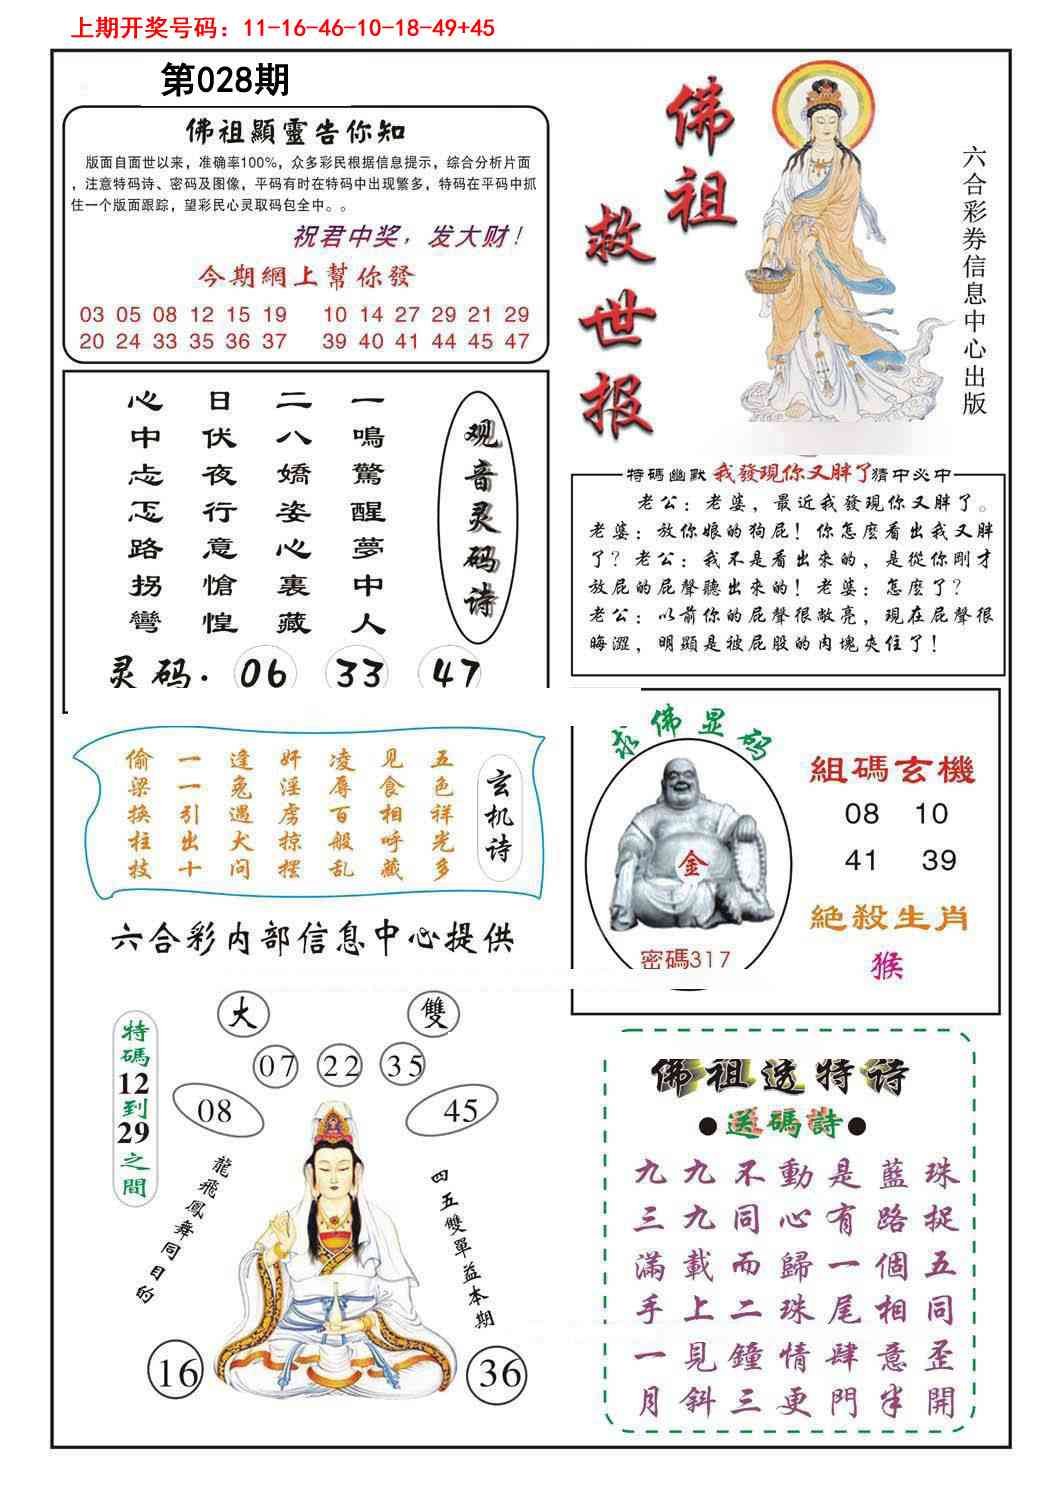 上期开奖号码：11-16-46-10-18-49+45
第028期
佛祖顯靈告你知
版面自面世以来，准确率100%，众多彩民根据信息提示，综合分析片面
，注意特码诗、密码及图像，平码有时在特码中出现繁多，特码在平码中抓
住一个版面跟踪，望彩民心灵取码包全中。。
祝君中奖，发大财！
今期網上幫你發
03 05 08 12 15 19 10 14 27 29 21 29
20 24 33 35 36 37 39 40 41 44 45 47
佛祖
救世报
六合彩券信息中心出版
观音灵码诗
一鳴驚醒夢中人
二八嬌姿心裏藏
日伏夜行意愴惶
心中忐忑路拐彎
灵码. 06 33 47
特碼幽默 我發現你又胖了 猜中必中
老公：老婆，最近我發現你又胖了。
老婆：放你娘的狗屁！你怎麼看出我又胖
了？老公：我不是看出來的，是從你剛才
放屁的屁聲聽出來的！老婆：怎麼了？
老公：以前你的屁聲很敞亮，現在屁聲很
晦澀，明顯是被屁股的肉塊夾住了！
玄机诗
五色祥光多
见食相呼藏
凌辱百般乱
奸淫虏掠摆
逢兔遇犬问
一一引出十
偷梁换柱技
六合彩内部信息中心提供
求佛显码
金
密碼317
組碼玄機
08 10
41 39
絕殺生肖
猴
大 雙
07 22 35
08 45
特碼12到29之間
龍飛鳳舞同目的
四五雙單益本期
16 36
佛祖透特诗
●送碼詩●
九九不動是藍珠
三九同心有路捉
滿載而歸一個五
手上二珠尾相同
一見鐘情肆意歪
月斜三更門半開